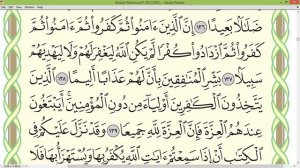 ضَلَٰلًۢا بَعِيدًا ۝١٣٦ إِنَّ ٱلَّذِينَ ءَامَنُوا۟ ثُمَّ كَفَرُوا۟ ثُمَّ ءَامَنُوا۟ ثُمَّ
كَفَرُوا۟ ثُمَّ ٱزْدَادُوا۟ كُفْرًا لَّمْ يَكُنِ ٱللَّهُ لِيَغْفِرَ لَهُمْ وَلَا لِيَهْدِيَهُمْ
سَبِيلًۢا ۝١٣٧ بَشِّرِ ٱلْمُنَٰفِقِينَ بِأَنَّ لَهُمْ عَذَابًا أَلِيمًا ۝١٣٨ ٱلَّذِينَ
يَتَّخِذُونَ ٱلْكَٰفِرِينَ أَوْلِيَآءَ مِن دُونِ ٱلْمُؤْمِنِينَ ۚ أَيَبْتَغُونَ
عِندَهُمُ ٱلْعِزَّةَ فَإِنَّ ٱلْعِزَّةَ لِلَّهِ جَمِيعًا ۝١٣٩ وَقَدْ نَزَّلَ عَلَيْكُمْ فِى
ٱلْكِتَٰبِ أَنْ إِذَا سَمِعْتُمْ ءَايَٰتِ ٱللَّهِ يُكْفَرُ بِهَا وَيُسْتَهْزَأُ بِهَا فَلَا